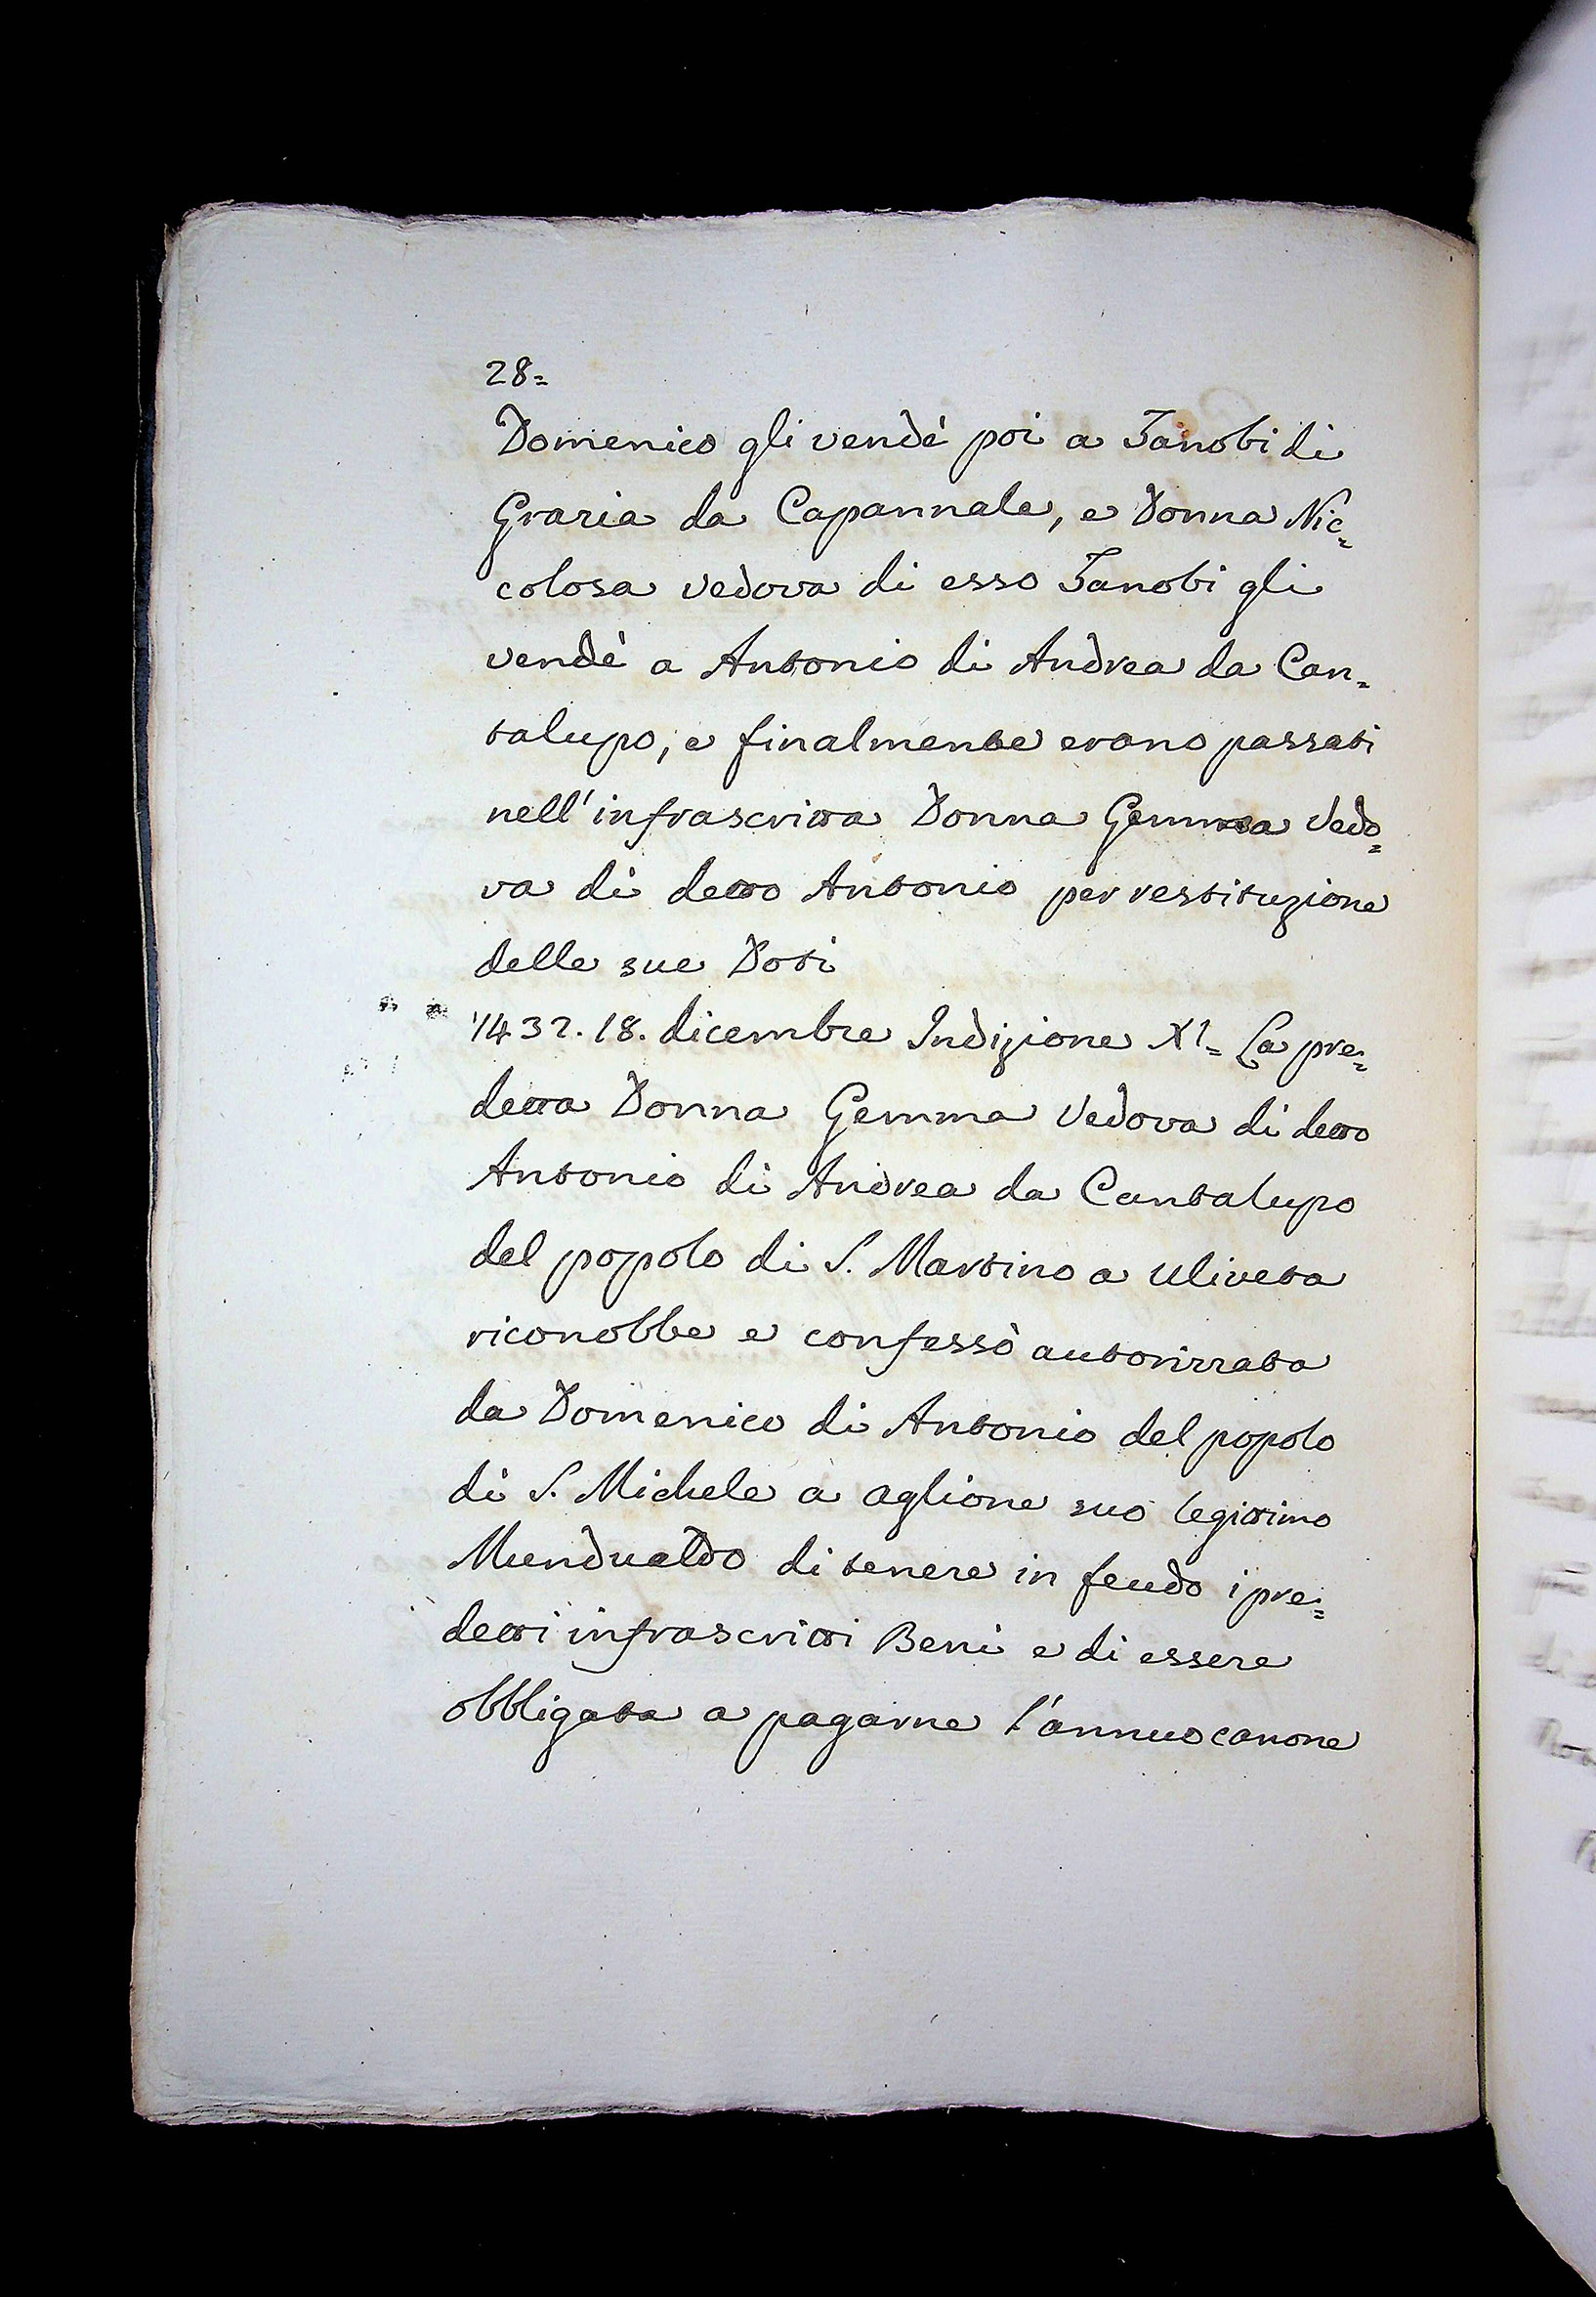 28=
Domenico gli vendè poi a Zanobi di
Grazia da Capannale, e Donna Nic=
colosa vedova di esso Zanobi gli
vendè a Antonio di Andrea da Can=
talupo, e finalmente erano passati
nell'infrascritta Donna Gemma Vedo=
va di detto Antonio per restituzione
delle sue Doti
1432. 18. dicembre Indizione XI= La pre=
detta Donna Gemma Vedova di detto
Antonio di Andrea da Cantalupo
del popolo di S. Martino a Uliveta
riconobbe e confessò autorizzata
da Domenico di Antonio del popolo
di S. Michele a Aglione suo legittimo
Mundualdo di tenere in feudo i pre=
detti infrascritti Beni e di essere
obbligata a pagarne l'annuo canone